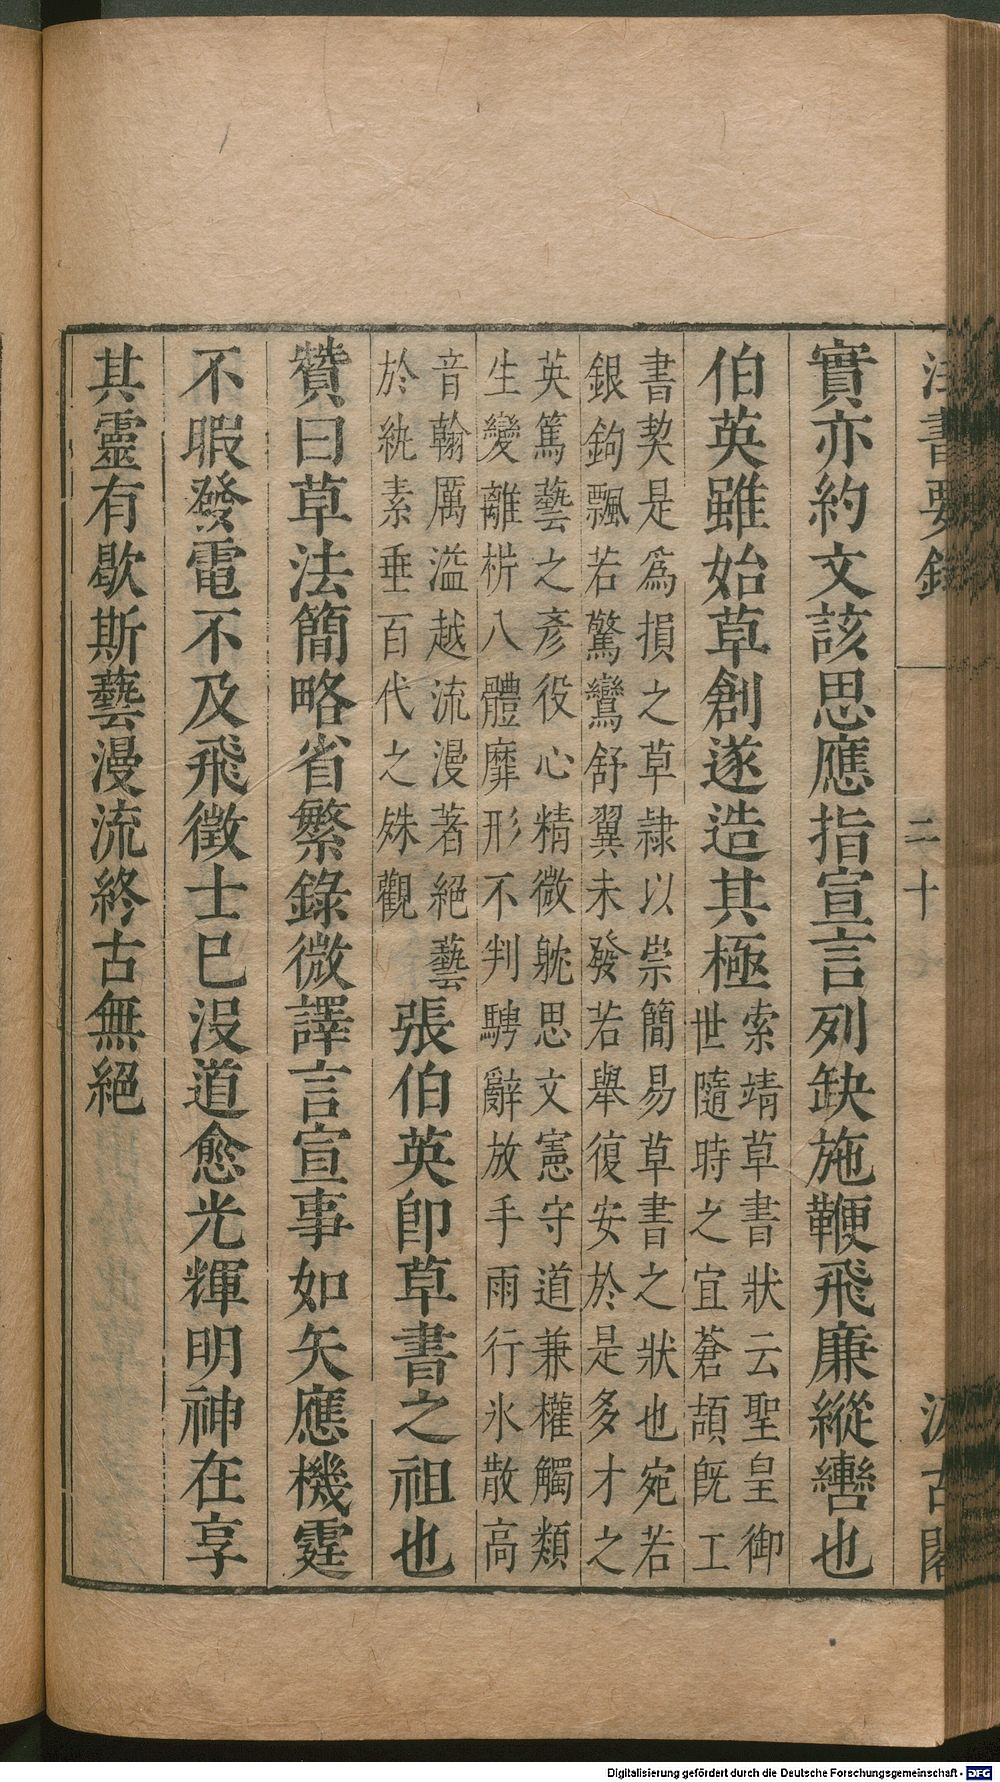 法書要錄
二十
汲古閣
實亦約文該思應指宣言列缺施鞭飛廉縱轡也
伯英雖始草創遂造其極
索靖草書狀云聖皇御
世隨時之宜蒼頡旣工
書契是爲損之草隷以崇簡易草書之狀也宛若
銀鉤飄若驚鸞舒翼未發若舉復安於是多才之
英篤藝之彥役心精微躭思文憲守道兼權觸類
生變離枿八體靡形不判騁辭放手雨行氷散高
音翰厲溢越流漫著絕藝
於紈素垂百代之殊觀
張伯英卽草書之祖也
贊曰草法簡略省繁錄微譯言宣事如矢應機霆
不暇發電不及飛徵士巳沒道愈光輝明神在享
其靈有歇斯藝漫流終古無絕
Digitalisierung gefördert durch die Deutsche Forschungsgemeinschaft - DFG